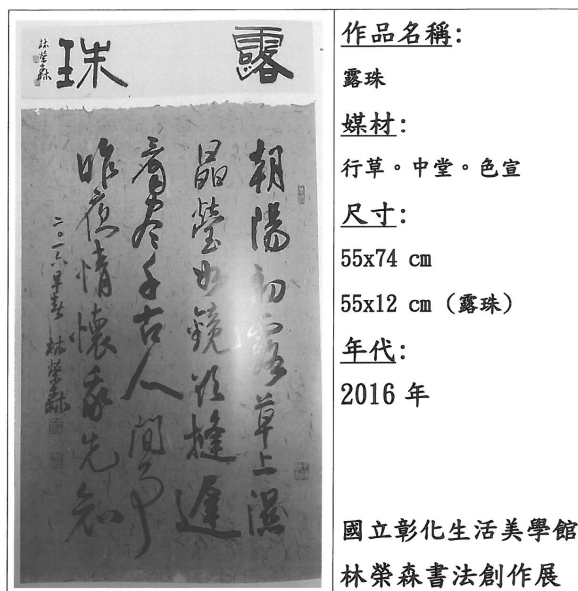 露珠
林榮森
朝陽初露草上濕
晶瑩如鏡縫遲
看盡千古人間事
昨夜情懷我先知
二〇一六早春 林榮森
作品名稱:
露珠
媒材:
行草。中堂。色宣
尺寸:
55x74 cm
55x12 cm (露珠)
年代:
2016 年
國立彰化生活美學館
林榮森書法創作展